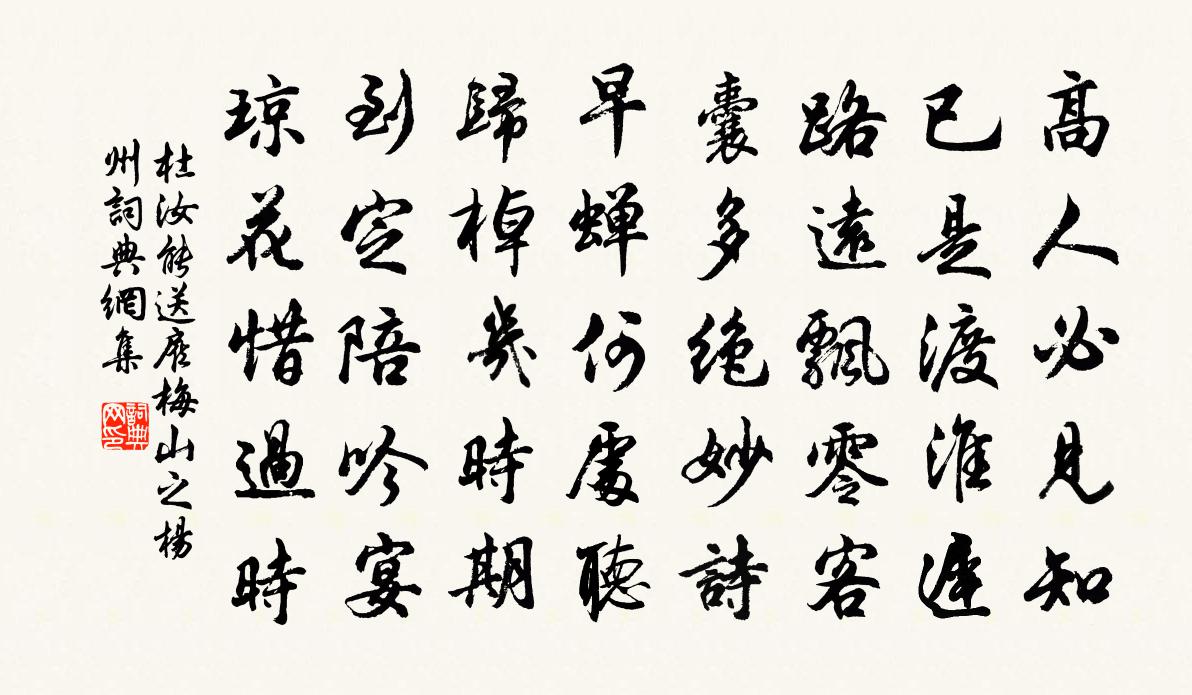 高人必見知
已是渡淮遲
路遠飄零客
囊多絶妙詩
早蟬何處聽
歸棹幾時期
到定陪吟宴
琼花惜過時
杜汝能送詹梅山之楊
州詞典網集
詞典
网印